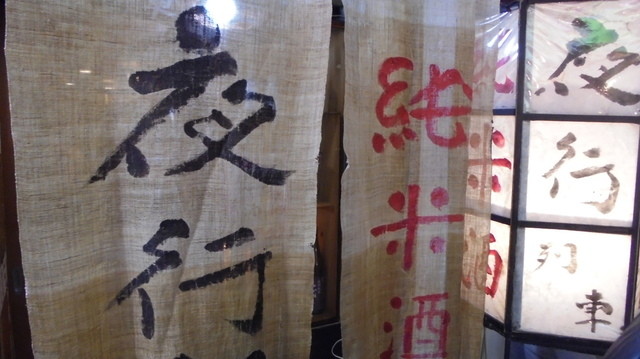 夜行
純米酒
純米酒
夜行列車